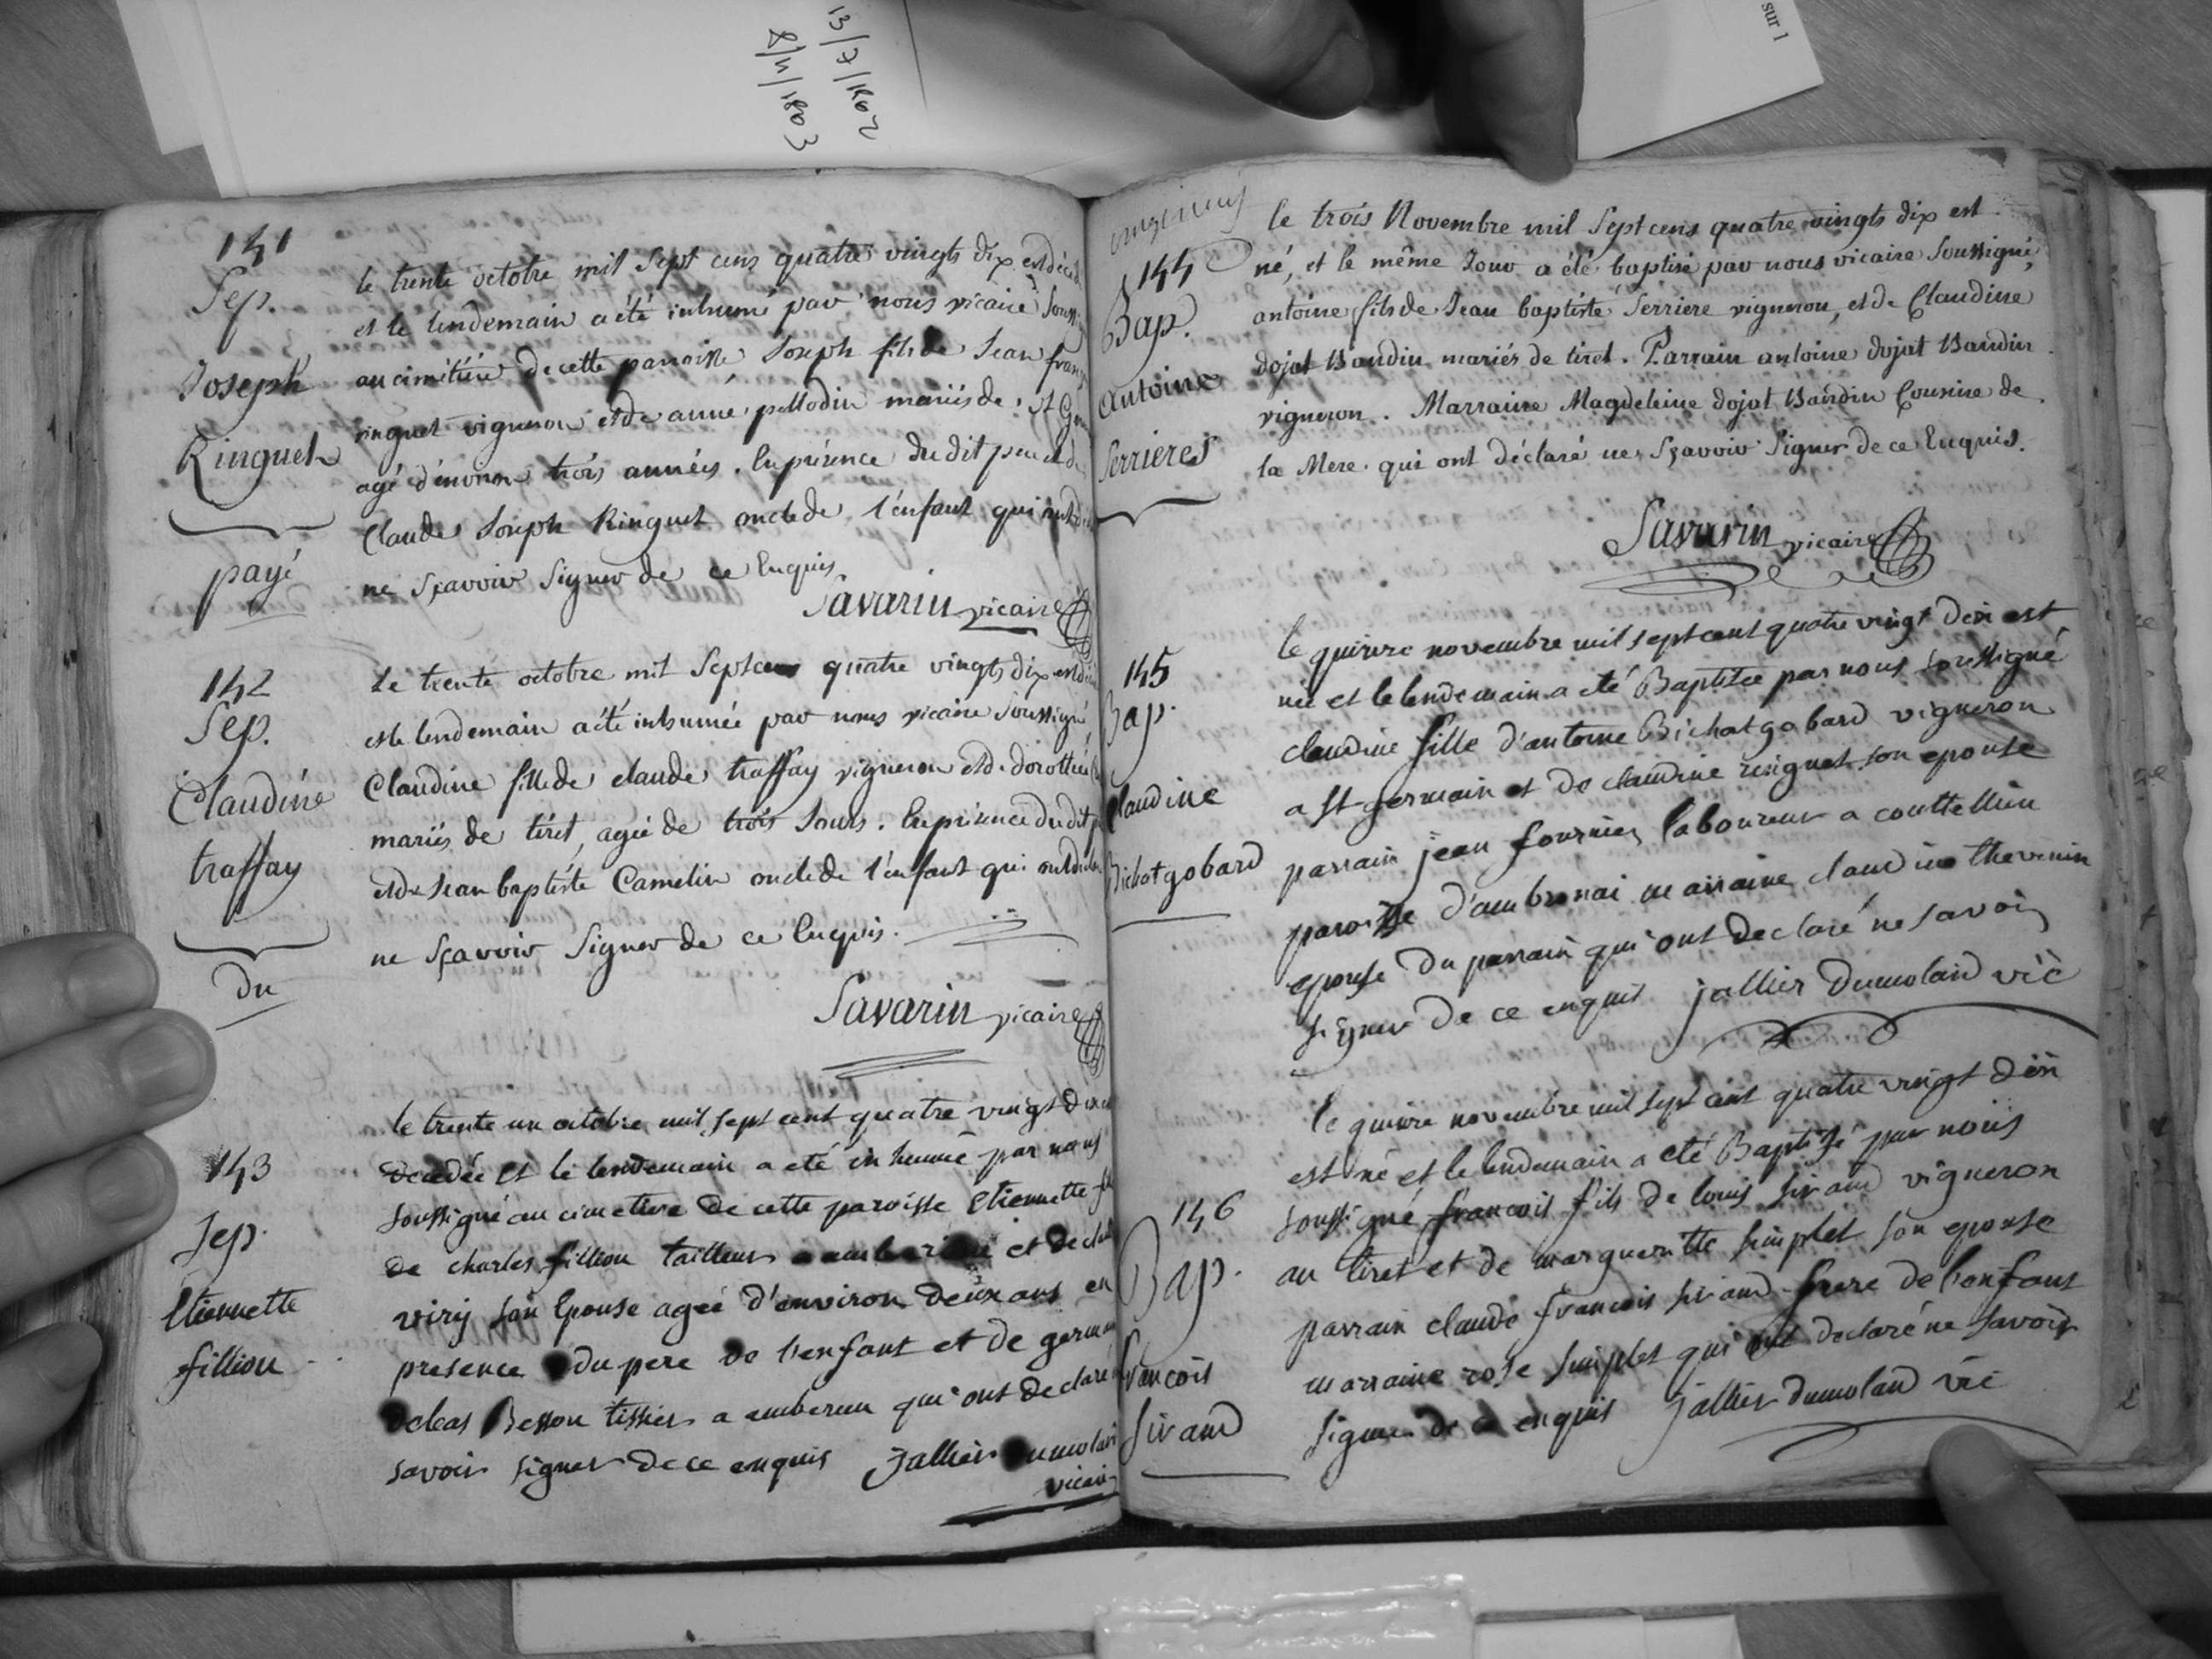 13/7/1802
8/4/1803
sur 1
141
Sep.
Joseph
Ringuet
payé
le trente octobre mil sept cens quatre vingts dix est décédé
et le lendemain a été inhumé par nous vicaire
au cimitière de cette parroisse, Joseph fils de Jean
ringuet vigneron et de anne pellodin mariés de St
agé d'environ trois années. En présence du dit pere et de
Claude Joseph Ringuet oncle de l'enfant qui
ne sçavoir signer de ce Enquis
Savarin vicaire
142
Sep.
Claudine
traffay
du
Le trente octobre mil sept cens quatre vingts dix est
et le lendemain a été inhumée par nous vicaire soussigné,
Claudine fille de claude traffay vigneron et de dorothée
mariés de tiret, agée de trois Jours. En présence du dit
et de Jean baptiste Camelin oncle de l'enfant qui
ne sçavoir signer de ce Enquis.
Savarin vicaire
143
Sep.
Etiennette
fillion
le trente un octobre mil sept cent quatre vingt
decedée et le lendemain a eté inhumée par nous
soussigné au cimetiere de cette paroisse Etiennette
de charles fillion tailleur et de
viry son Epouse agée d'environ deux ans en
presence du pere de l'enfant et de
Besson tissier a amberieu qui ont declaré
savoir signer de ce enquis Jallier
vicaire
144
Bap.
antoine
Serrieres
le trois Novembre mil Sept cens quatre vingts dix est
né, et le même Jour a été baptisé par nous vicaire Soussigné,
antoine fils de Jean baptiste Serriere vigneron, et de Claudine
dojat Baudin mariés de tiret. Parrain antoine dojat Baudin
vigneron. Marraine Magdeleine dojat Baudin Cousine de
la Mere qui ont déclaré ne Sçavoir Signer de ce Enquis.
Savarin vicaire
145
Bap.
Claudine
Bichatgobard
le quinze novembre mil sept cent quatre vingt dix est
née et le lendemain a eté Baptisée par nous soussigné
claudine fille d'antoine Bichatgobard vigneron
a st germain et de claudine ringuet son epouse
parrain jean fournier laboureur a couttellieu
paroisse d'ambronai marraine claudine thevenin
epouse du parrain qui ont declaré ne savoir
signer de ce enquis jallier Dumolard vic
146
Bap.
francois
Sirand
le quinze novembre mil sept cent quatre vingt dix
est né et le lendemain a eté Baptisé par nous
soussigné francois fils de louis sirand vigneron
au tiret et de margueritte simplet son epouse
parrain claude francois sirand frere de l'enfant
marraine rose simplet qui ont declaré ne savoir
signer de ce enquis Jallier dumolard vic